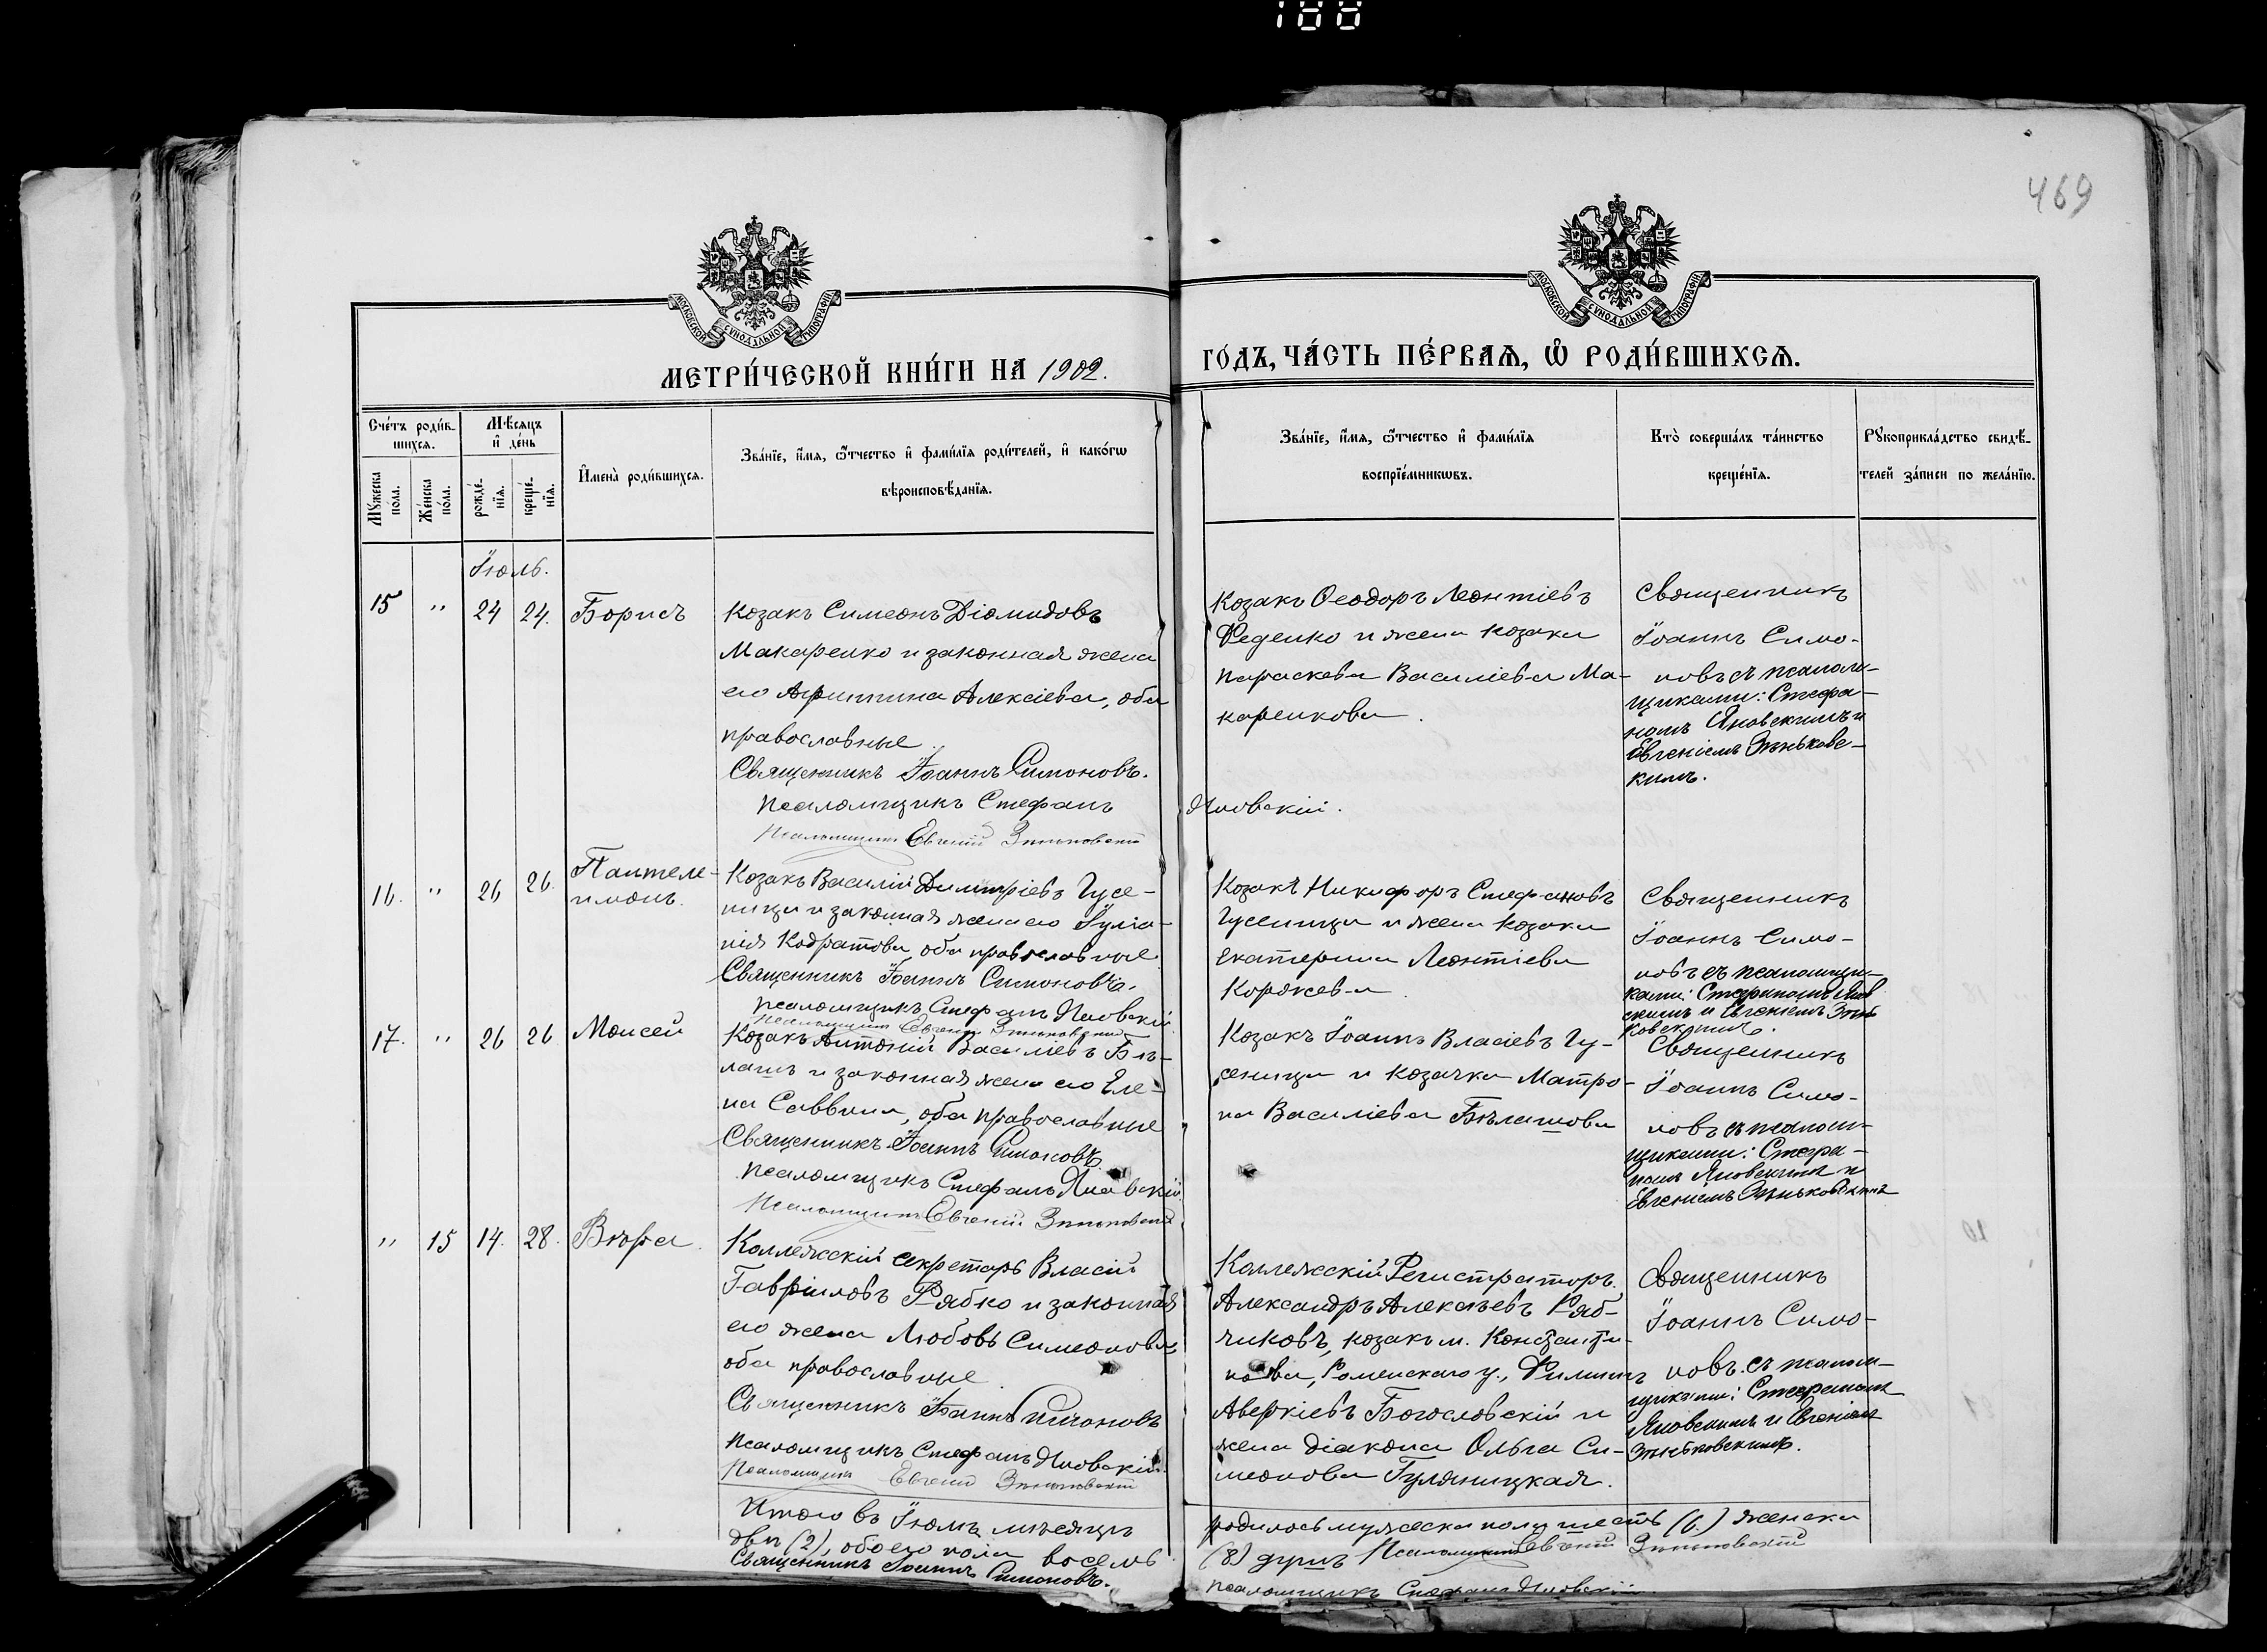 188
469
МОСКОВСКОЙ СУНОДАЛЬНОЙ ТИПОГРАФІИ
МОСКОВСКОЙ СУНОДАЛЬНОЙ ТИПОГРАФІИ
МЕТРИ́ЧЕСКОЙ КНИ́ГИ НА 1902.
ГО́ДЪ, ЧА́СТЬ ПЕ́РВАѦ, Ѡ҆ РОДИ́ВШИХСѦ.
Сче́тъ роди́в-
шихсѧ.
Мꙋ́жеска
по́ла.
Же́нска
по́ла.
Мѣ́сѧцъ
и҆ де́нь
рожде́-
нїѧ.
креще́-
нїѧ.
И҆мена̀ роди́вшихсѧ.
Зва́нїе, и҆́мѧ, ѻ҆́тчество и҆ фами́лїѧ роди́телей, и҆ како́гѡ
вѣроисповѣ́данїѧ.
Зва́нїе, и҆́мѧ, ѻ҆́тчество и҆ фами́лїѧ
воспрїе́мникѡвъ.
Кто̀ соверша́лъ та́инство
креще́нїѧ.
Рꙋкоприкла́дство свидѣ́-
телей за́писи по жела́нїю.
Іюль.
15 " 24 24. Борисъ
Козакъ Симеонъ Діомидовъ
Макаренко и законная жена
его Агриппина Алексіева, оба
православные.
Священникъ Іоаннъ Симоновъ.
Псаломщикъ Стефанъ Яновскій.
Псаломщикъ Евгеній Зиньковскій
Козакъ Ѳеодоръ Леонтіевъ
Феденко и жена козака
Параскева Василіева Ма-
каренкова.
Священникъ
Іоаннъ Симо-
новъ съ псалом-
щиками: Стефа-
номъ Яновскимъ и
Евгеніемъ Зиньковс-
кимъ.
16. " 26 26. Пантеле-
имонъ.
Козакъ Василій Димитріевъ Гусе-
ница и законная жена его Іуліа-
нія Кодратова, оба православные
Священникъ Іоаннъ Симоновъ.
Псаломщикъ Стефанъ Яновскій
Псаломщикъ Евгеній Зиньковскій
Козакъ Никифоръ Стефановъ
Гусеница и жена козака
Екатерина Леонтіева
Коржева.
Священникъ
Іоаннъ Симо-
новъ съ псаломщи-
ками: Стефаномъ Янов
скимъ и Евгеніемъ Зинь
ковскимъ.
17. " 26 26 Моисей
Козакъ Антоній Василіевъ Бѣ-
лашъ и законная жена его Еле-
на Саввина, оба православные
Священникъ Іоаннъ Симоновъ
Псаломщикъ Стефанъ Яновскій.
Псаломщикъ Евгеній Зиньковскій
Козакъ Іоаннъ Власіевъ Гу-
сеница и козачка Матро-
на Василіева Бѣлашова
Священникъ
Іоаннъ Симо-
новъ съ псалом-
щиками: Стефа-
номъ Яновскимъ и
Евгеніемъ Зиньковскимъ
" 15 14. 28. Вѣра.
Коллежскій секретарь Власій
Гавріиловъ Рябко и законная
его жена Любовь Симеонова,
оба православные.
Священникъ Іоаннъ Симоновъ
Псаломщикъ Стефанъ Яновскій.
Псаломщикъ Евгеній Зиньковскій
Коллежскій Регистраторъ
Александръ Алексѣевъ Ряб-
чиковъ, козакъ м. Константи-
нова, Роменскаго у., Филиппъ
Аверкіевъ Богословскій и
жена діакона Ольга Си-
меонова Гуляницкая.
Священникъ
Іоаннъ Симо-
новъ съ псалом-
щиками: Стефаномъ
Яновскимъ и Евгеніемъ
Зиньковскимъ.
Итого въ Іюлѣ мѣсяцѣ родилось мужеска пола шесть (6.) женска
двѣ (2), обоего пола восемь (8) душъ Псаломщикъ Евгеній Зиньковскій
Священникъ Іоаннъ Симоновъ.
Псаломщикъ Стефанъ Яновскій.